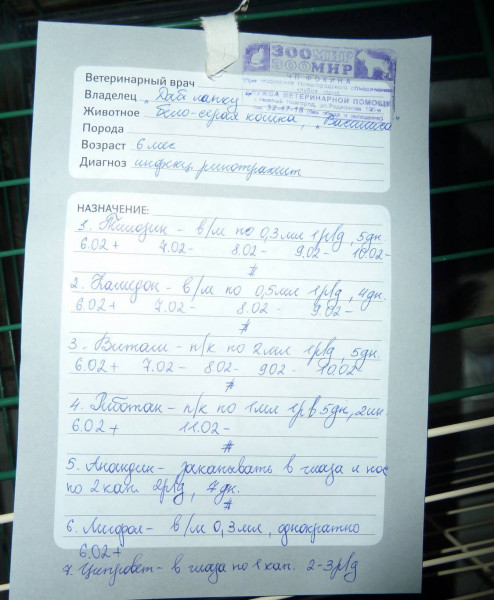 ЗООМИР
ЗООМИР
ЧП ФОКИНА
СЛУЖБА ВЕТЕРИНАРНОЙ ПОМОЩИ
Ветеринарный врач
Владелец „Дай лапу"
Животное бело-серая кошка, „Василиса"
Порода
Возраст 6 мес
Диагноз инфекц. ринотрахеит
НАЗНАЧЕНИЕ:
1. Тилозин - в/м по 0,3 мл 1 р/д, 5 дн.
6.02 + 7.02 - 8.02 - 9.02 - 10.02 -
#
2. Камидон - в/м по 0,5 мл 1 р/д, 4 дн.
6.02 + 7.02 - 8.02 - 9.02 -
#
3. Витам - п/к по 2 мл 1 р/д, 5 дн.
6.02 + 7.02 - 8.02 - 9.02 - 10.02 -
#
4. Риботан - п/к по 1 мл 1 р в 5 дн, 2 ин.
6.02 + 11.02 -
#
5. Анандин - закапывать в глаза и нос
по 2 кап. 2 р/д, 7 дн.
#
6. Лигфол - в/м 0,3 мл, однократно
6.02 +
7. Ципровет - в глаза по 1 кап. 2-3 р/д